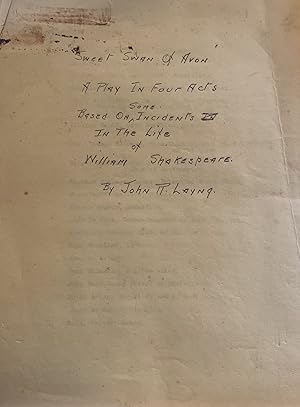 "Sweet Swan Of Avon"
A Play In Four Acts
Some
Based On, Incidents
In The Life
of
William Shakespeare.
By John Layng.